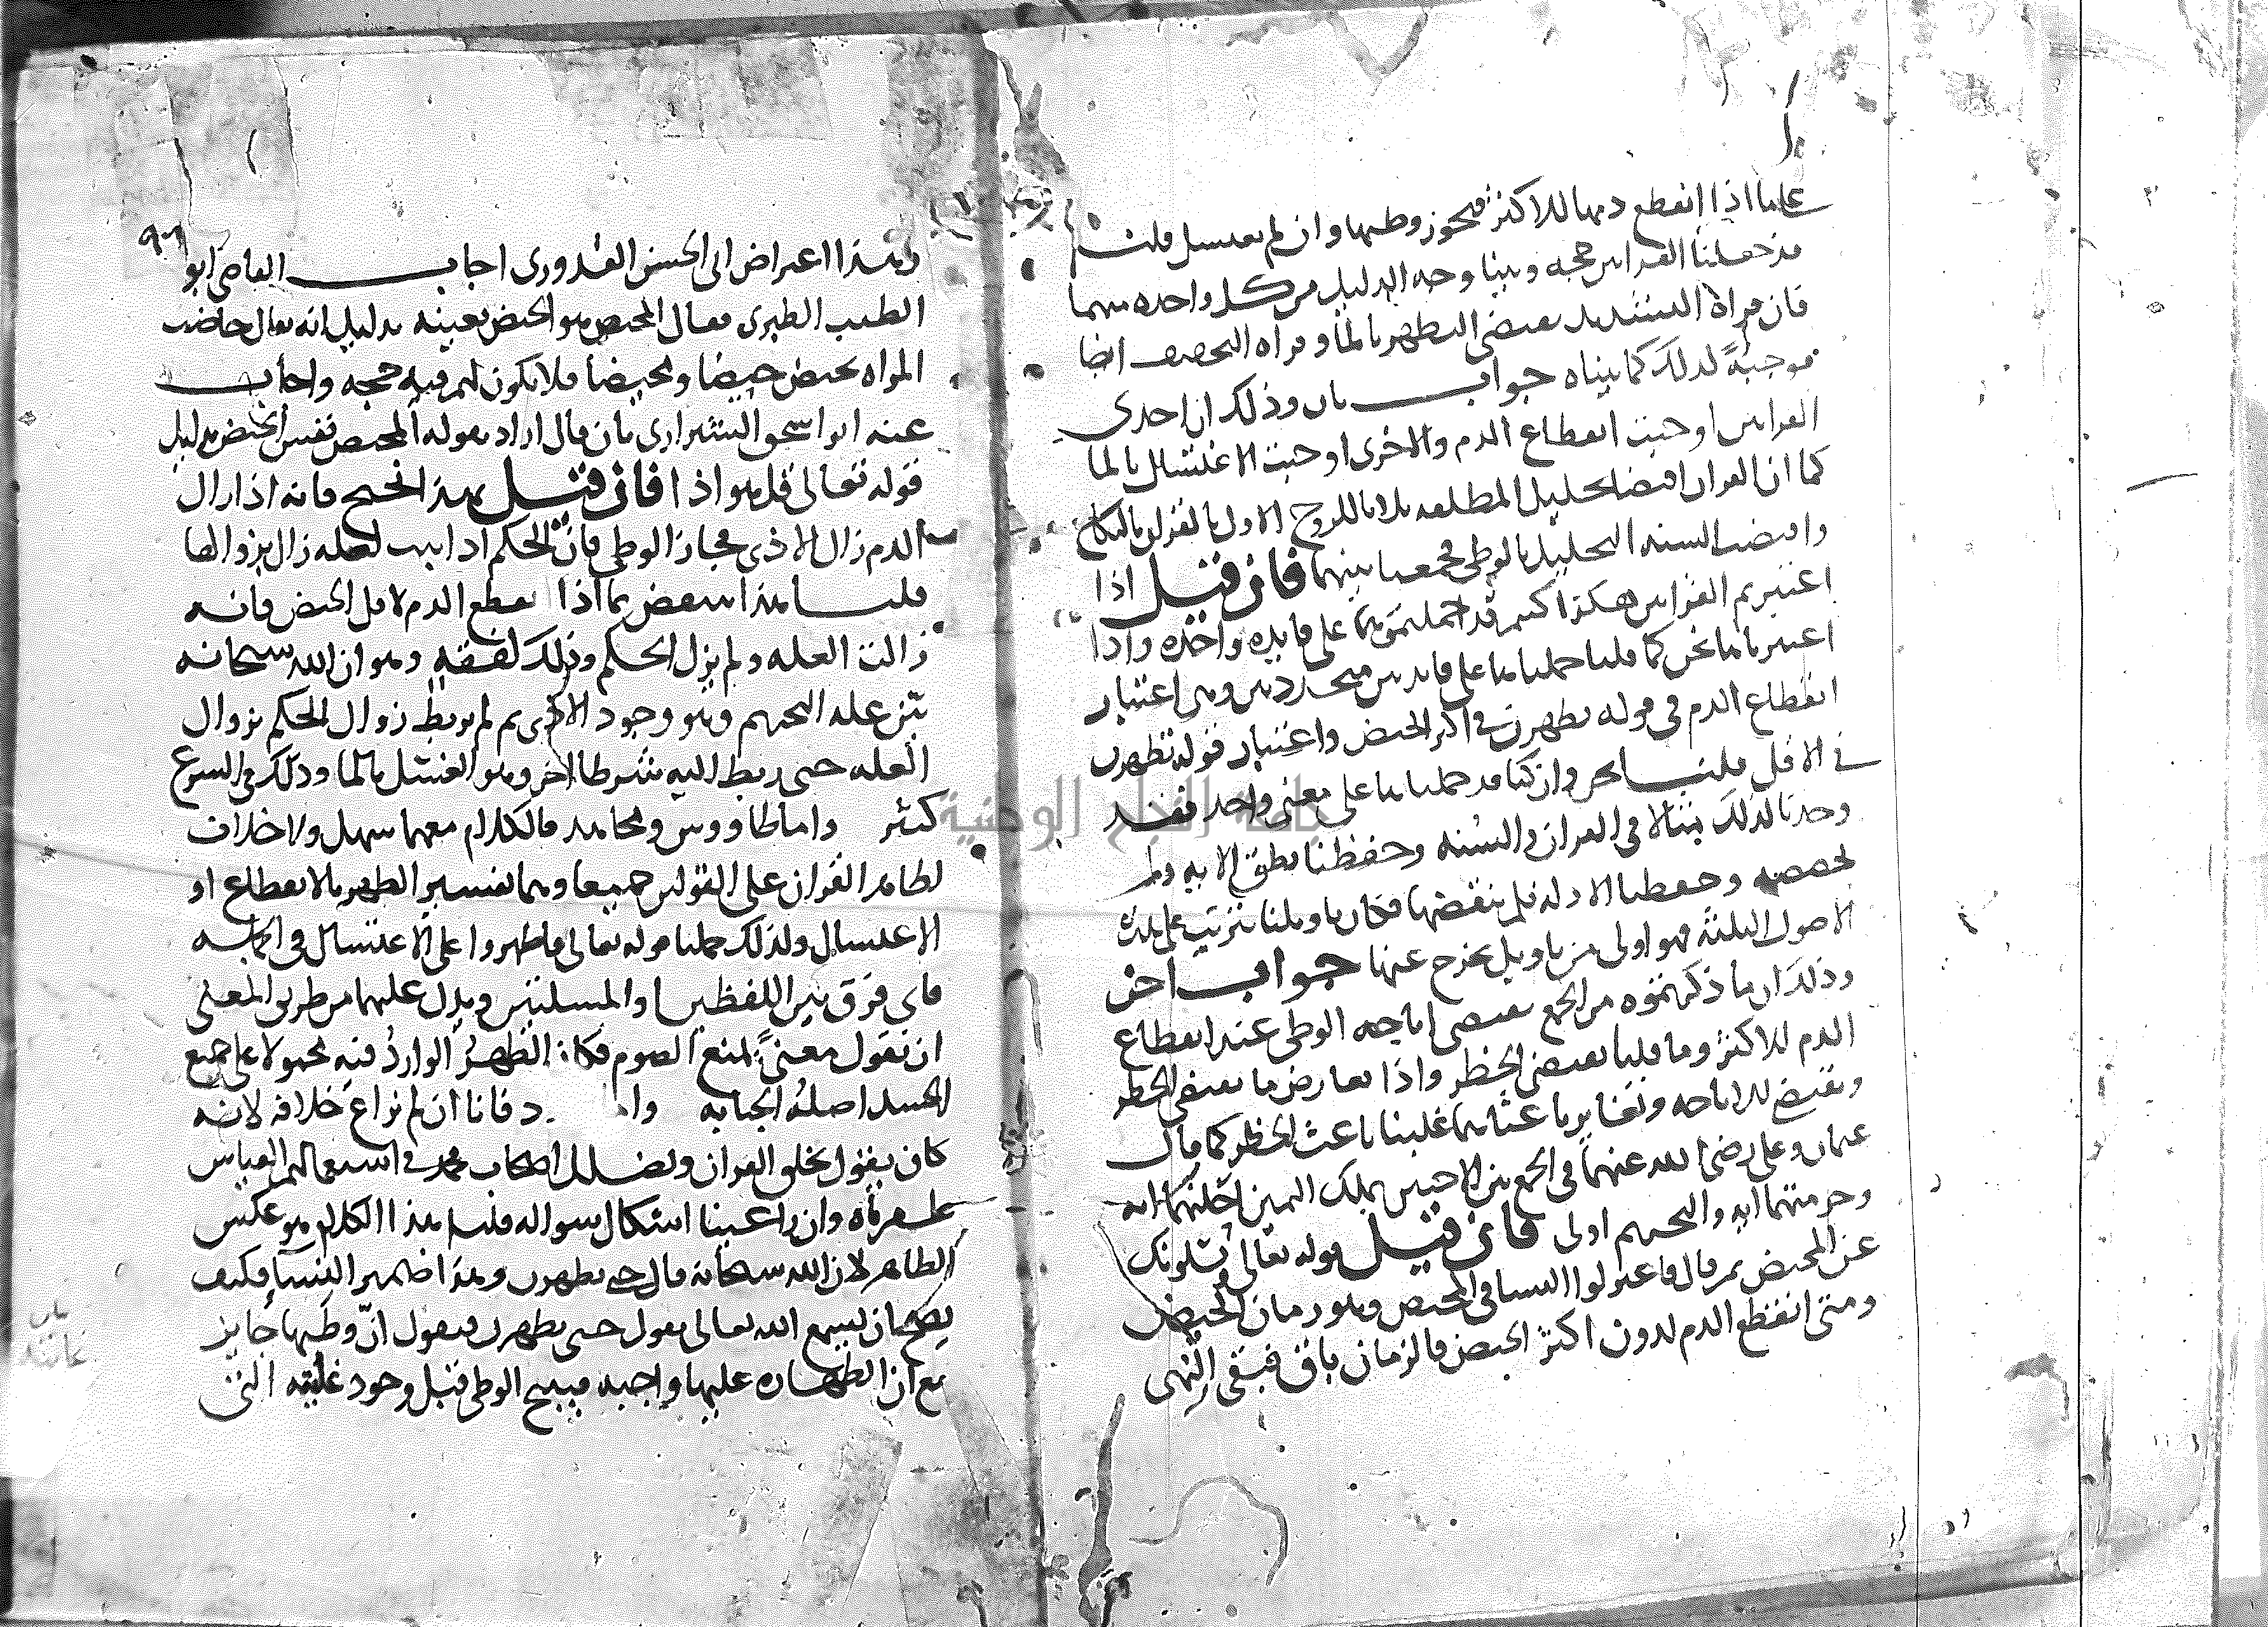 علىها اذا انقطع دمها للاكثر فيجوز وطيها وان لم تغتسل قلنا
قد جعلنا القراتين حجة وبينا وجه الدليل من كل واحدة منهما
فان قراة التشديد تقتضي التطهر بالما وقراة التخفيف ايضا
موجبة لذلك كما بيناه جواب ثان وذلك ان احدى
القراتين اوجبت انقطاع الدم والاخرى اوجبت الاغتسال بالما
كما ان القران اقتضا تحليل المطلقة ثلاثا للزوج الاول بالنكاح
واقتضت السنة التحليل بالوطى فجمعنا بينهما فان قيل اذا
اعتبرتم القراتين هكذا كنتم قد حملتموهما على فايدة واحدة واذا
اعتبرناها نحن كما قلنا حملناها على فايدتين متجددتين وهي اعتبار
انقطاع الدم في قوله يطهرن في اكثر الحيض واعتبار قوله تطهرن
في الاقل قلنا نحن وان كنا قد حملناها على معنى واحد فقد
وجدنا لذلك مثالا في القران والسنة وحفظنا نطق الاية ولم
نخصصه وحفظنا الادلة فلم ننقضها فكان تاويلنا يترتب على هذه
الاصول الثلثة فهو اولى من تاويل يخرج عنها جواب اخر
وذلك ان ما ذكرتموه من الجمع يقتضي اباحة الوطى عند انقطاع
الدم للاكثر وما قلنا يقتضي الحظر واذا تعارض ما يقتضي الحظر
ويقتضي الاباحة وتغاير باعثاهما غلبنا باعث الحظر كما قال
عثمان وعلى رضي الله عنهما في الجمع بين الاختين بملك اليمين احلتهما اية
وحرمتهما اية والتحريم اولى فان قيل قوله تعالى يسلونك
عن المحيض ثم قال فاعتزلوا النسا في المحيض وهو زمان الحيض
ومتى انقطع الدم لدون اكثر الحيض فالزمان باق فبقي النهي
وهذا اعتراض ابي الحسن القدوري اجاب القاضي ابو
الطيب الطبري فقال المحيض هو الحيض بعينه بدليل انه يقال حاضت
المراة تحيض حيضا ومحيضا فلا يكون لهم فيه حجة واجاب
عنه ابو اسحق الشيرازي بان قال اراد بقوله المحيض نفس الحيض بدليل
قوله تعالى قل هو اذا فان قيل بهذا نحتج فانه اذا زال
الدم زال الاذى فجاز الوطى فان الحكم اذا ثبت لعلة زال بزوالها
قلنا هذا ينتقض بما اذا انقطع الدم لاقل الحيض فانه
زالت العلة ولم يزل الحكم وذلك لفقه وهو ان الله سبحانه
بين علة التحريم وهو وجود الاذى ثم لم يربط زوال الحكم بزوال
العلة حتى ربط اليه شرطا اخر وهو الغسل بالما وذلك في الشرع
كثير واما طاووس ومجاهد فالكلام معهما سهل ولا خلاف
لظاهر القران على القولين جميعا وهما تفسير الطهر بالانقطاع او
الاغتسال ولذلك حملنا قوله تعالى فاطهروا على الاغتسال في الجنابة
فاى فرق بين اللفظين او المسلتين ويدل عليهما من طريق المعنى
ان نقول معنى يمنع الصوم فكان الطهر الوارد فيه محمولا على جميع
الجسد اصله الجنابة واما د فانا ان لم نراع خلافه لانه
كان يقول بخلق القران ويضلل اصحاب محمد في استعمالهم القياس
وان راعينا اشكال سواله قلنا هذا الكلام هو عكس
الظاهر لان الله سبحانه قال حتى يطهرن وهذا ضمير النسا فكيف
يصح ان نسمع الله تعالى يقول حتى يطهرن فنقول ان وطيها جايز
مع ان الطهارة عليها واجبة فيبيح الوطى قبل وجود غايته التي